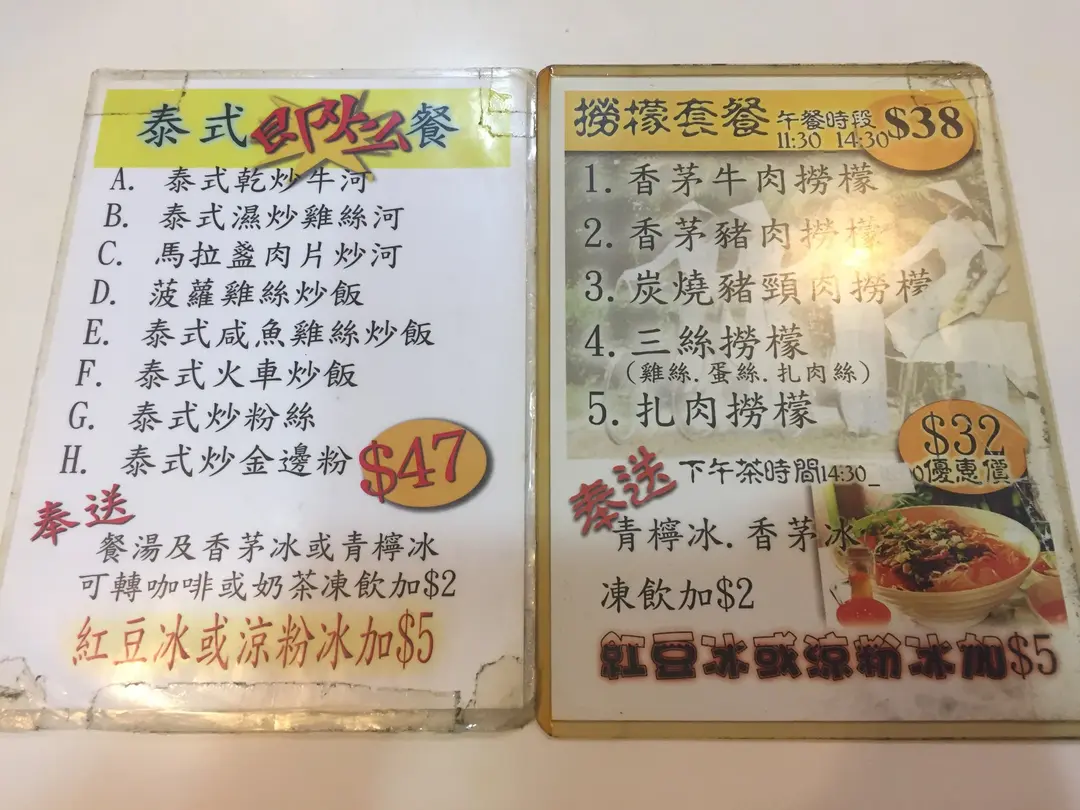 泰式即炒餐
A. 泰式乾炒牛河
B. 泰式濕炒雞絲河
C. 馬拉盞肉片炒河
D. 菠蘿雞絲炒飯
E. 泰式咸魚雞絲炒飯
F. 泰式火車炒飯
G. 泰式炒粉絲
H. 泰式炒金邊粉
$47
奉送
餐湯及香茅冰或青檸冰
可轉咖啡或奶茶凍飲加$2
紅豆冰或涼粉冰加$5
撈檬套餐 午餐時段
11:30_14:30
$38
1. 香茅牛肉撈檬
2. 香茅豬肉撈檬
3. 炭燒豬頸肉撈檬
4. 三絲撈檬
(雞絲.蛋絲.扎肉絲)
5. 扎肉撈檬
$32
優惠價
奉送
下午茶時間14:30_
青檸冰.香茅冰
凍飲加$2
紅豆冰或涼粉冰加$5